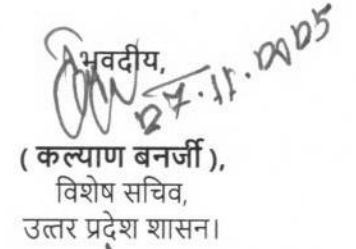 भवदीय,
27.11.2025
( कल्याण बनर्जी ),
विशेष सचिव,
उत्तर प्रदेश शासन।